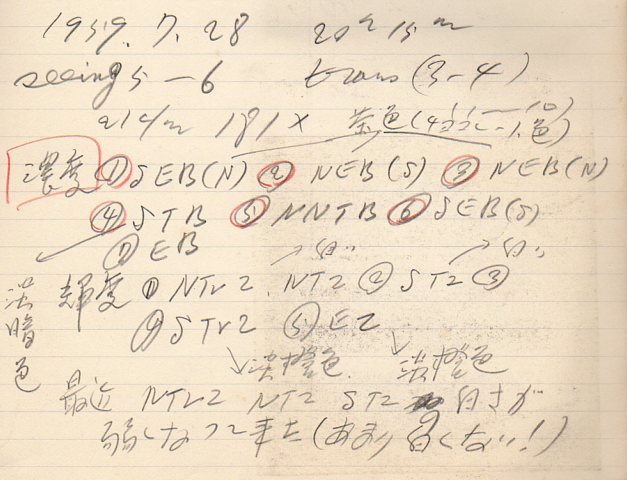 1959. 7. 28  20h 15m
seeing 5-6  trans (3-4)
21cm 181×  茶色
濃度 ① SEB(N) ② NEB(S) ③ NEB(N)
④ STB ⑤ NNTB ⑥ SEB(S)
⑦ EB
→白い →白い
輝度 ① NTrZ NTZ ② STZ ③
④ STrZ ⑤ EZ
淡暗色
淡橙色 淡橙色
最近 NTrZ NTZ STZ 白さが
弱くなって来た(あまり白くない!)